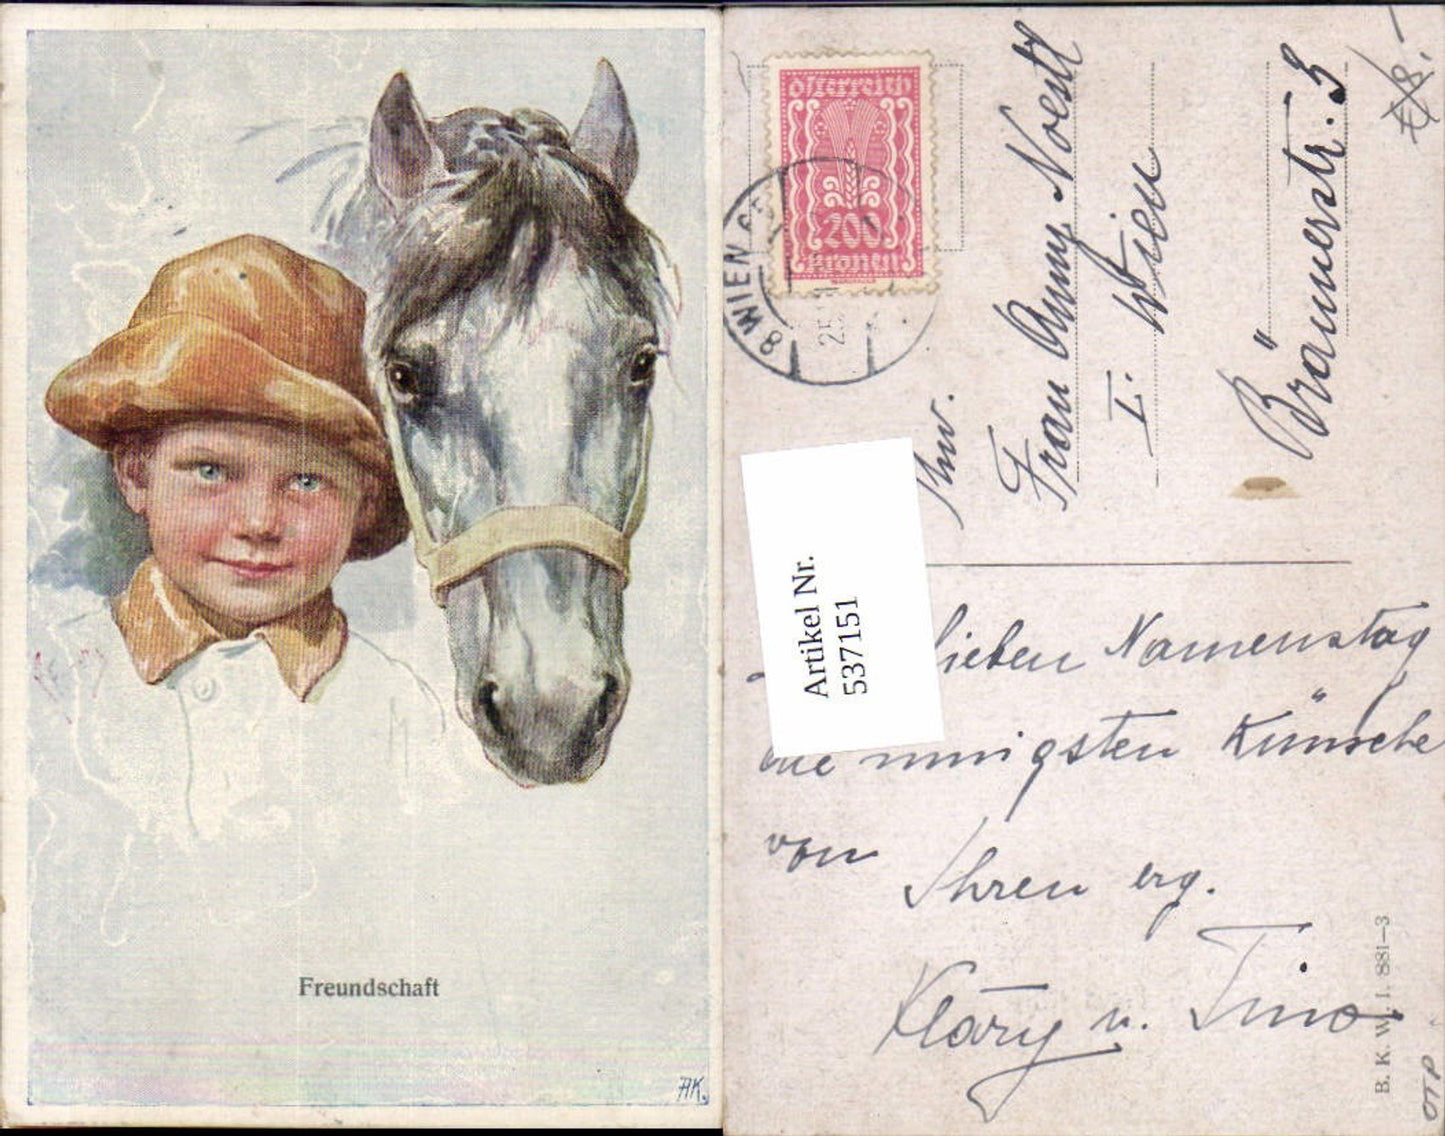 Freundschaft
AK.
österreich
200
kronen
8 WIEN
25.
Frau Anny Noestl
I. Wien
Bräunerstr. 5
Artikel Nr.
537151
lieben Namenstag
die innigsten Wünsche
von
Ihren erg.
Kläry u. Tino
B. K. W. I. 881-3
OTP